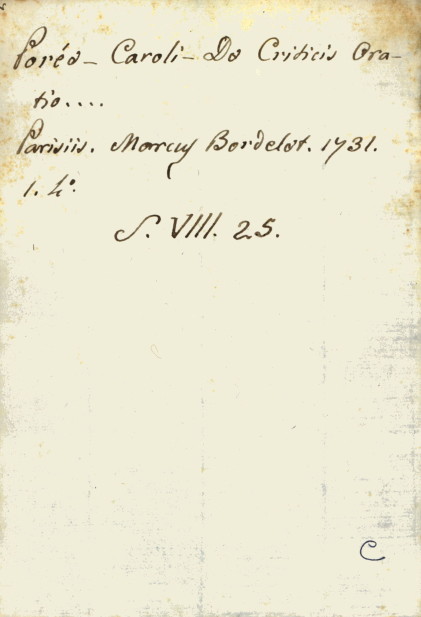 Porée - Caroli - De Criticis Ora-
tio....
Parisiis. Marcus Bordelet. 1731.
1. 4º.
S. VIII. 25.
C